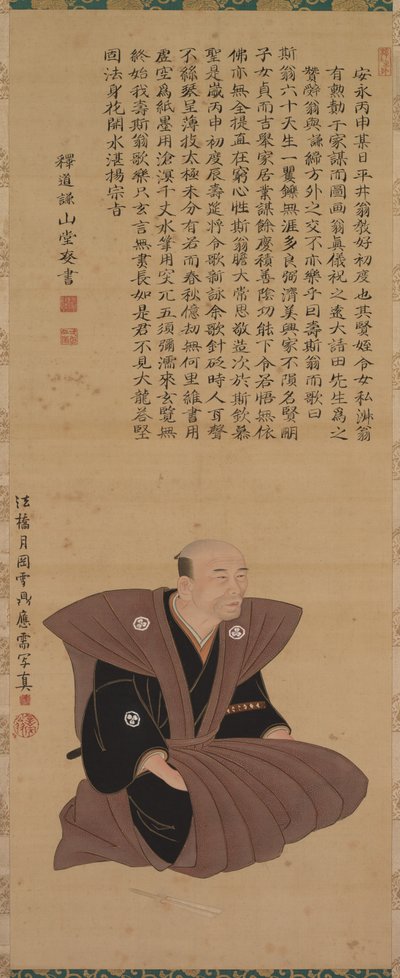 安永丙申某日平井翁敎好初度也其賢姪令女私淋翁
有勲勮于家謀而圖画翁眞儀祝之遠大請田先生爲之
贊辤翁與謙締方外之交不亦樂乎曰壽斯翁而歌曰
斯翁六十天生一矍鑠無涯多良弼濟美興家不隕名賢明
子女貞而吉擧家居業謀餘慶積善陰功能下令君悟無依
佛亦無全提直在窮心性斯翁膽大常思敬造次於斯欽慕
聖是歳丙申初度辰壽莚將令歌新詠余歌針砭時人耳聲
不絲琴呈薄技太極未分有若而春秋億劫無何里維書用
虚空爲紙墨用滄溟千丈水筆用突兀五須彌濡來玄覽無
終始我壽斯翁歌樂只玄言無盡長如是君不見大龍荅堅
固法身花開水湛揚宗吉
釋道謙山堂奏書
法橋月岡雪鼎應需写眞